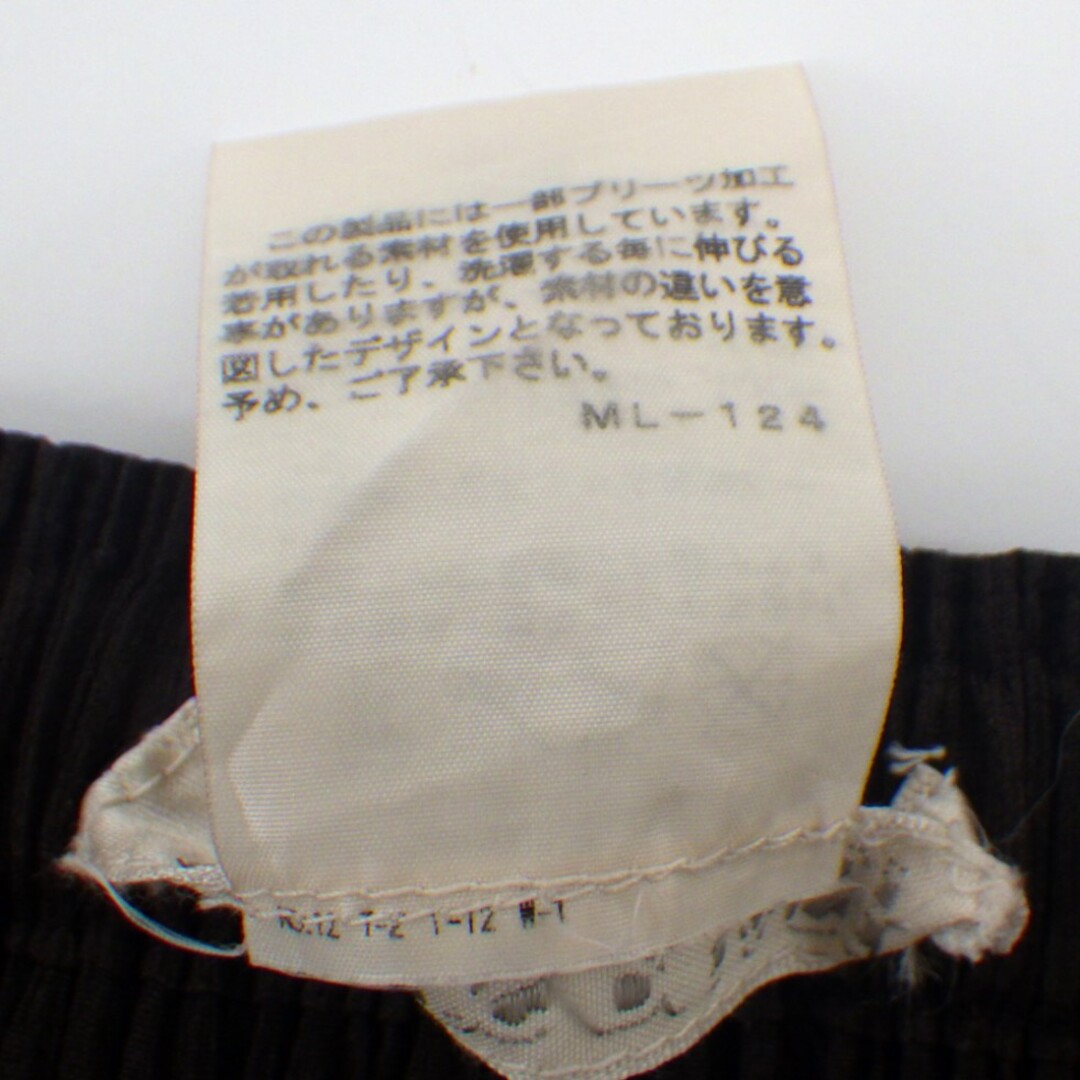 この製品には一部プリーツ加工
が取れる素材を使用しています。
若用したり、洗濯する毎に伸びる
事がありますが、素材の違いを意
図したデザインとなっております。
予め、ご了承下さい。
ML-124
T-2 1-12 W-1